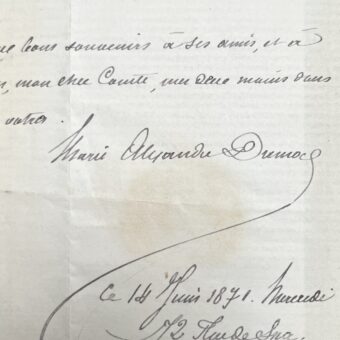 bons souvenirs à ses amis, et à
mon cher Comte, mes deux mains dans
Marie Alexandre Dumas
Ce 14 Juin 1871. Mercredi
72 Rue de Spa